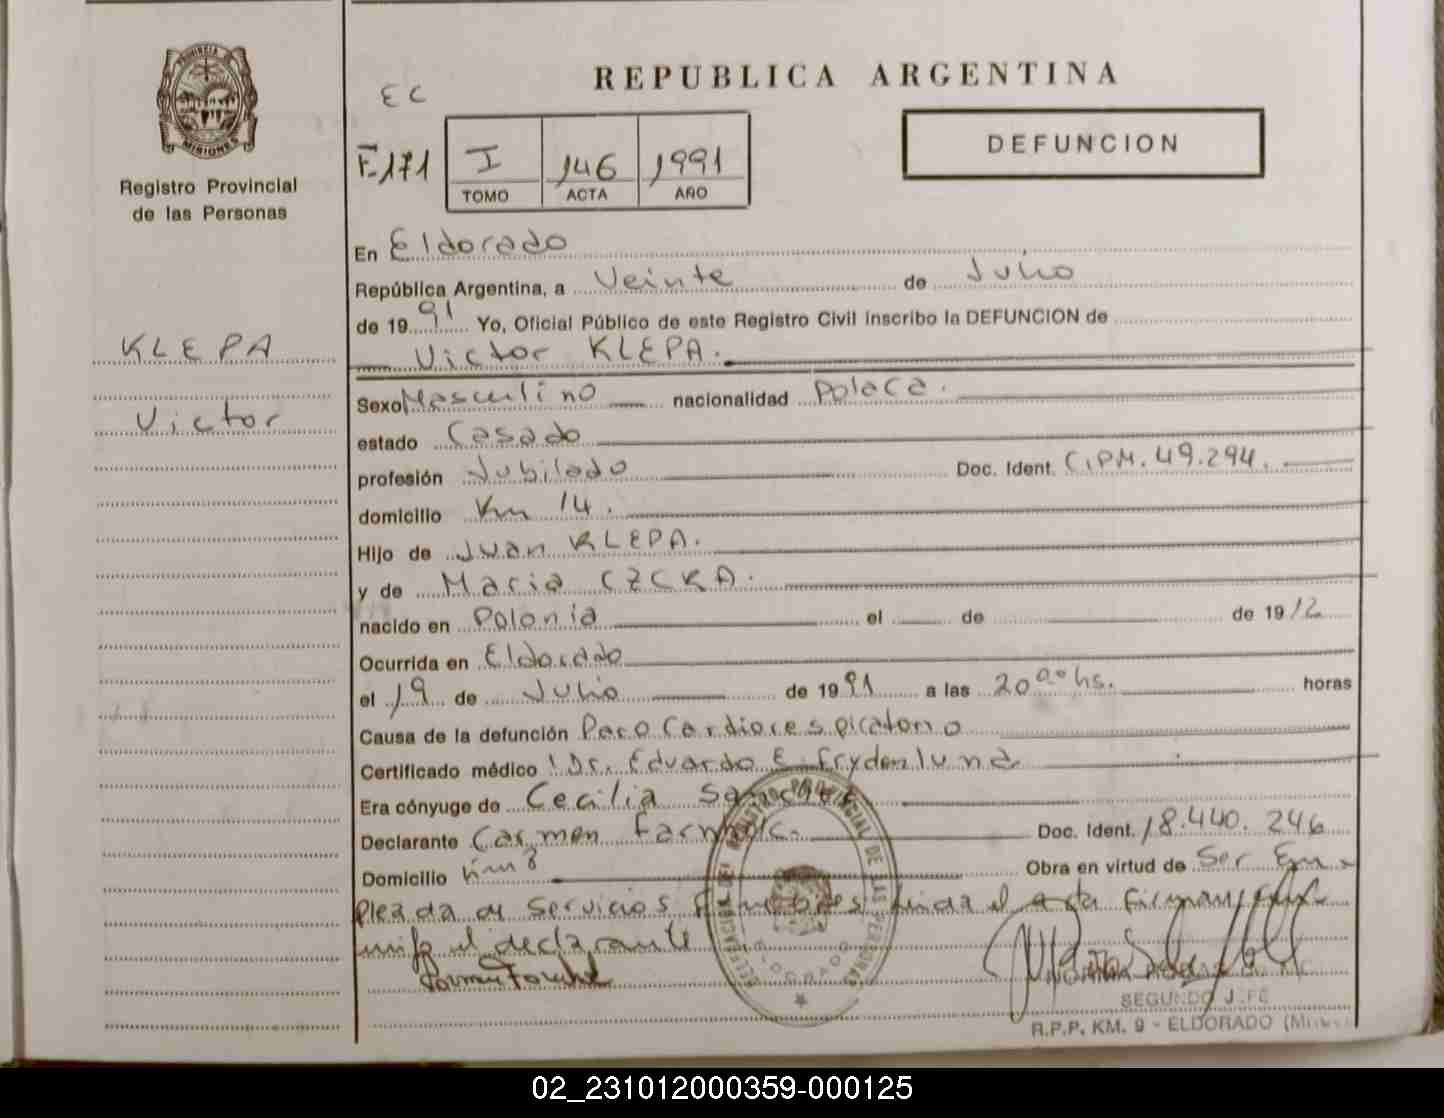 PROVINCIA
MISIONES
Registro Provincial
de las Personas
KLEPA
Victor
REPUBLICA ARGENTINA
EC
DEFUNCION
F-171
I 146 1991
TOMO ACTA AÑO
En Eldorado
República Argentina, a Veinte de Julio
de 1991 Yo, Oficial Público de este Registro Civil inscribo la DEFUNCION de
Victor KLEPA.
Sexo Masculino nacionalidad Polaca.
estado Casado
profesión Jubilado Doc. Ident. C.I.P.M. 49.294.
domicilio Km 14.
Hijo de Juan KLEPA.
y de Maria CZCKA.
nacido en Polonia el de de 1912
Ocurrida en Eldorado
el 19 de Julio de 1991 a las 20 00 hs. horas
Causa de la defunción Paro Cardiorespiratorio
Certificado médico Dr. Eduardo E. Frydenlund
Era cónyuge de Cecilia
Declarante Carmen Doc. Ident. 18.440.246
Domicilio Km 8 Obra en virtud de Ser Em
pleada de Servicios Funebres leida el Acta Firman
el declarante
SEGUNDO JEFE
R.P.P. KM. 9 - ELDORADO
02_231012000359-000125